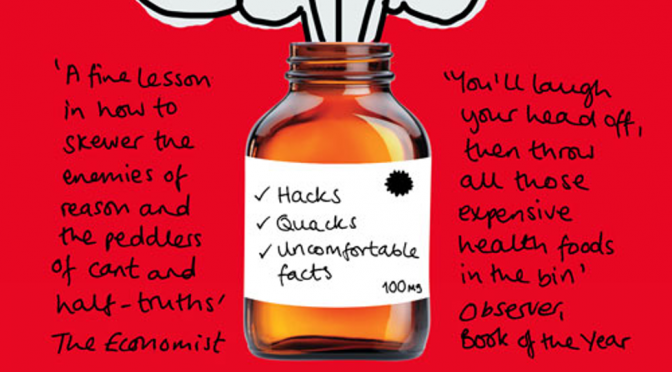 'A fine lesson
in how to
skewer the
enemies of
reason and
the peddlers
of cant and
half-truths'
The Economist
✓ Hacks
✓ Quacks
✓ Uncomfortable
facts
100mg
'You'll laugh
your head off,
then throw
all those
expensive
health foods
in the bin'
Observer,
Book of the Year